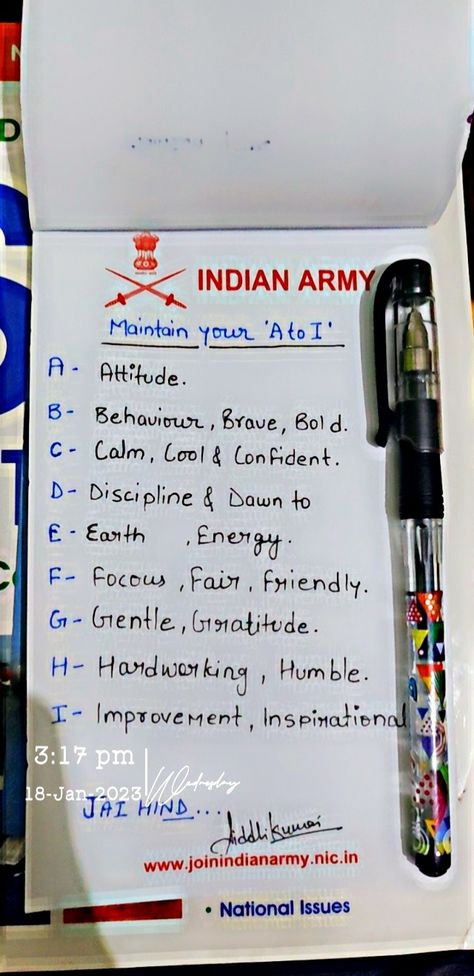 INDIAN ARMY
Maintain your 'A to I'
A - Attitude.
B - Behaviour, Brave, Bold.
C - Calm, Cool & Confident.
D - Discipline & Dawn to
E - Earth , Energy.
F - Focous, Fair, Friendly.
G - Gentle, Gratitude.
H - Hardworking, Humble.
I - Improvement, Inspirational
3:17 pm
18-Jan-2023 Wednesday
JAI HIND...
www.joinindianarmy.nic.in
• National Issues